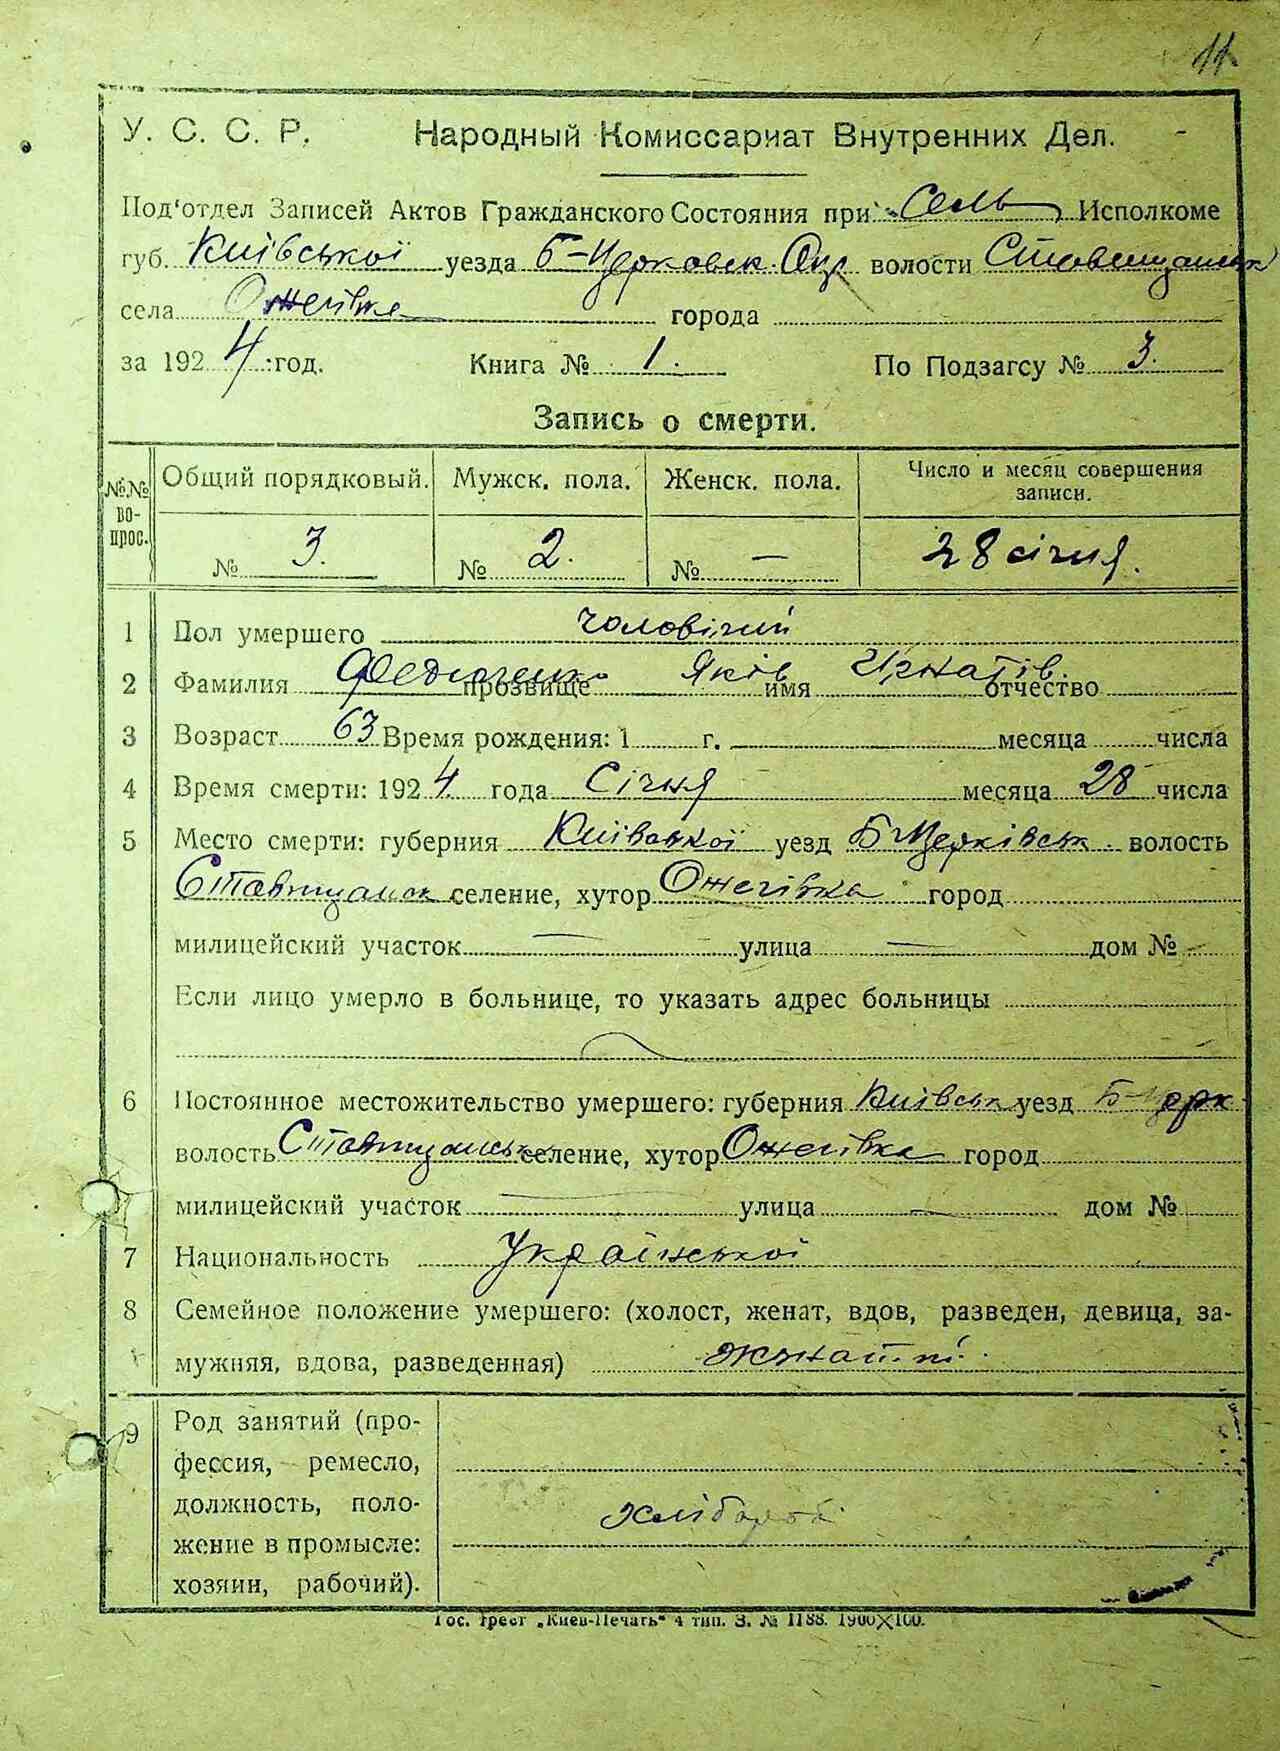 11
У. С. С. Р. Народный Комиссариат Внутренних Дел.
Под'отдел Записей Актов Гражданского Состояния при Сель Исполкоме
губ. Київської уезда Б-Церковск. Окр. волости Ставищанськ
села Ожегівка города
за 1924 год. Книга № 1. По Подзагсу № 3.
Запись о смерти.
№№ во-прос. Общий порядковый. Мужск. пола. Женск. пола. Число и месяц совершения записи.
№ 3. № 2. № — 28 січня.
1 Пол умершего чоловічий
2 Фамилия прозвище Яків имя Ігнатів. отчество
3 Возраст 63 Время рождения: 1 г. месяца числа
4 Время смерти: 1924 года Січня месяца 28 числа
5 Место смерти: губерния Київської уезд Б-Церківськ. волость
Ставищанск селение, хутор Ожегівка город
милицейский участок — улица — дом № —
Если лицо умерло в больнице, то указать адрес больницы
6 Постоянное местожительство умершего: губерния Київськ уезд Б-Церк
волость Ставищанськ селение, хутор Ожегівка город
милицейский участок — улица — дом №
7 Национальность Української
8 Семейное положение умершего: (холост, женат, вдов, разведен, девица, за-
мужняя, вдова, разведенная)
9 Род занятий (про-
фессия, ремесло,
должность, поло-
жение в промысле:
хозяин, рабочий).
хлібороб
Гос. трест „Киев-Печать" 4 тип. З. № 1188. 1900×100.